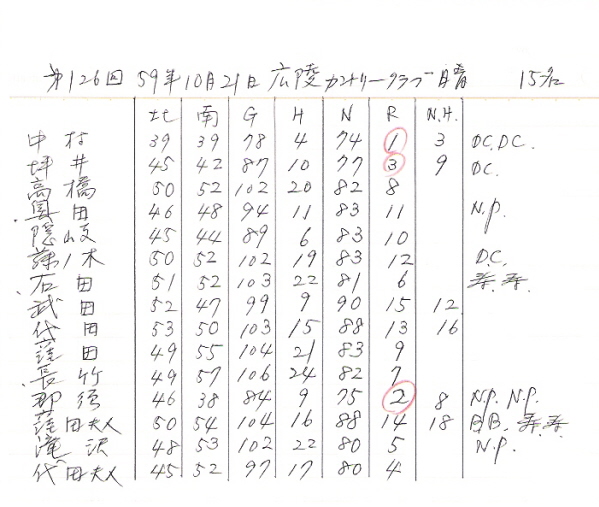 第126回 59年10月21日 広陵カントリークラブ 晴 15名
北 南 G H N R N.H.
中村 39 39 78 4 74 1 3 DC. DC.
坪井 45 42 87 10 77 3 9 DC.
高橋 50 52 102 20 82 8
田 46 48 94 11 83 11 N.P.
隠岐 45 44 89 6 83 10
木 50 52 102 19 83 12 D.C.
石田 51 52 103 22 81 6 寿. 寿.
武田 52 47 99 9 90 15 12
代田 53 50 103 15 88 13 16
窪田 49 55 104 21 83 9
長竹 49 57 106 24 82 7
那須 46 38 84 9 75 2 8 N.P. N.P.
窪田夫人 50 54 104 16 88 14 18 BB. 寿. 寿
滝沢 48 53 102 22 80 5 N.P.
代田夫人 45 52 97 17 80 4